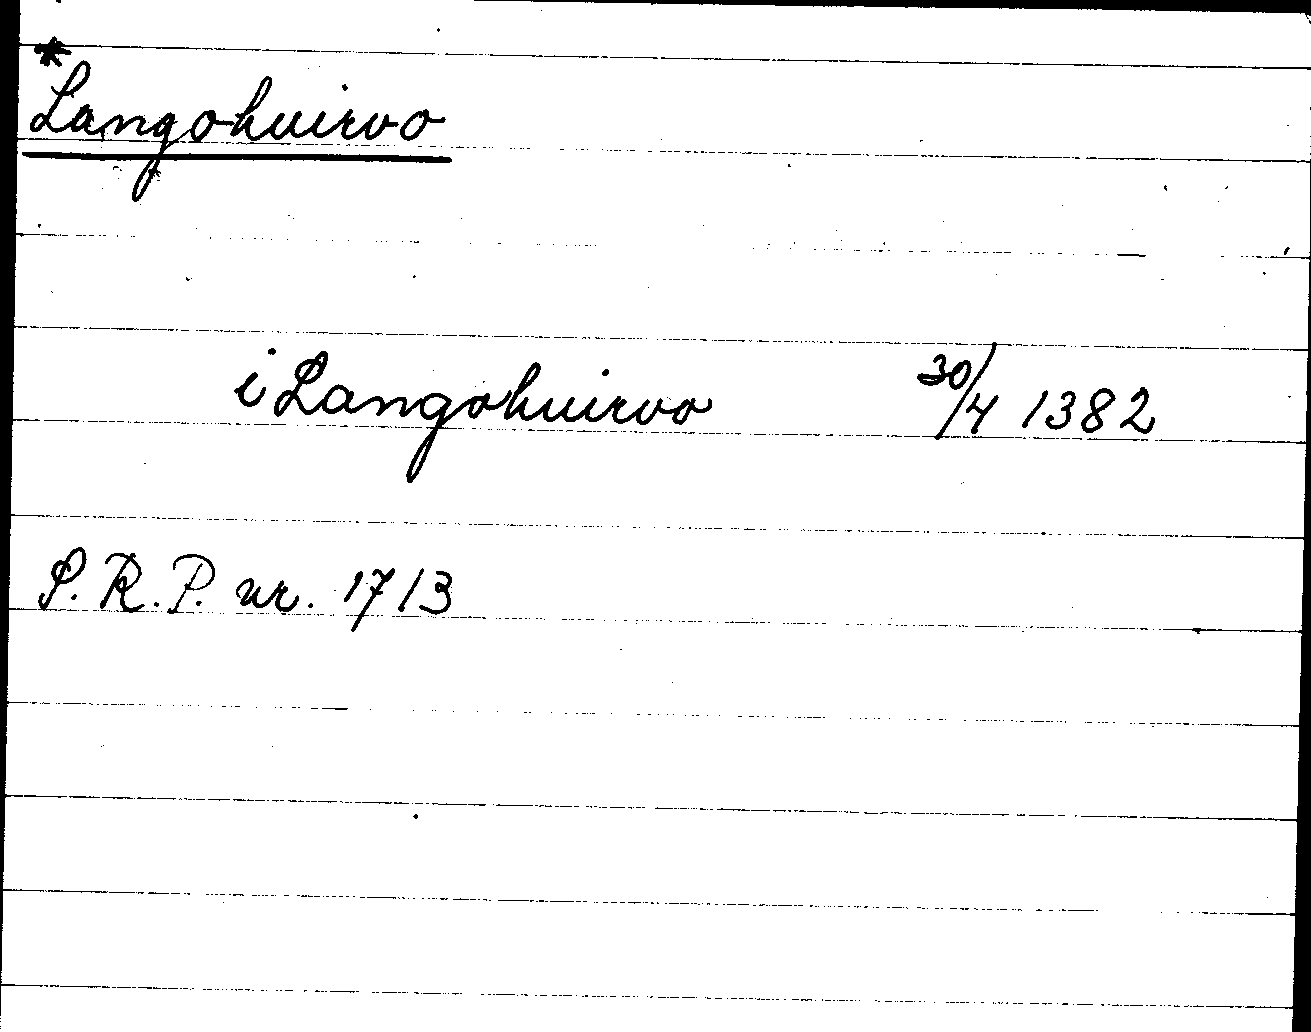 *Langohuirvo
i Langohuirvo 30/4 1382
S. R. P. nr. 1713